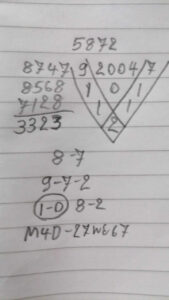 5872
8747 9 2004 7
8568 1 0 1
7128 1 1
3323 2
8-7
9-7-2
1-0 8-2
M4D-27W667